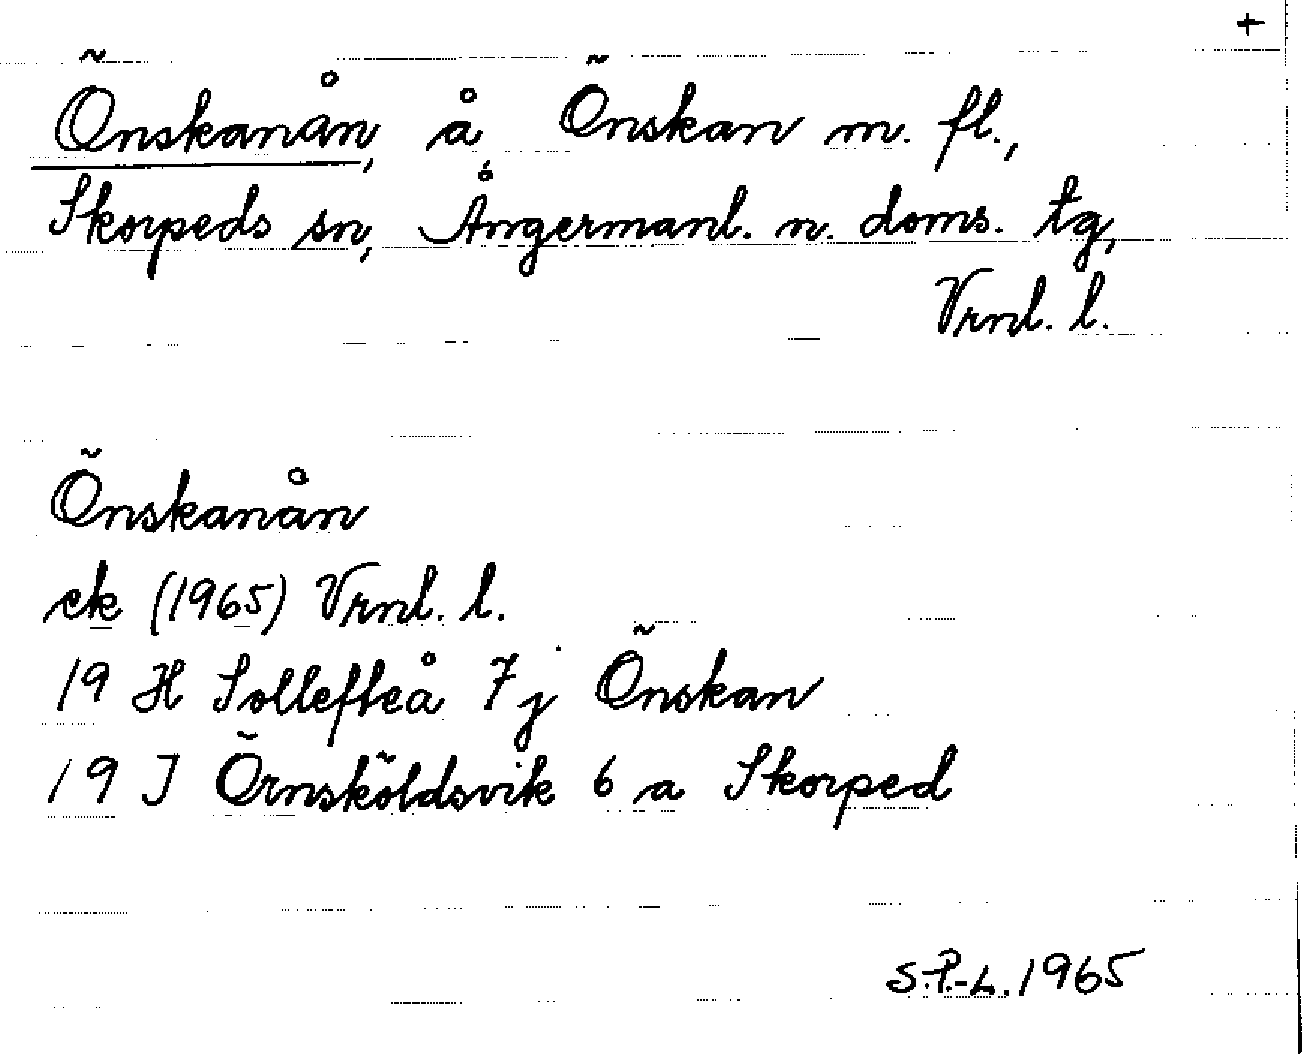 +
Önskanån, å, Önskan m. fl.,
Skorpeds sn, Ångermanl. n. doms. tg,
Vrnl. l.
Önskanån
ek (1965) Vrnl. l.
19 H Sollefteå 7 j Önskan
19 I Örnsköldsvik 6 a Skorped
S.P.-L. 1965